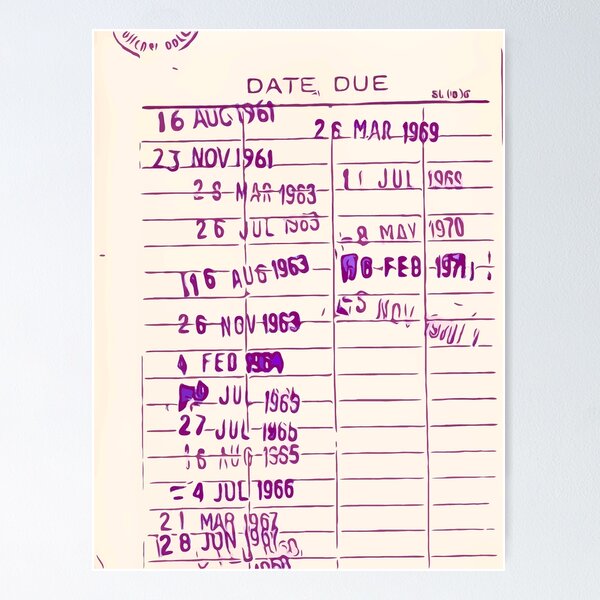 DATE DUE
16 AUG 1961
23 NOV 1961
28 MAR 1963
26 JUL 1963
16 AUG 1963
26 NOV 1963
4 FEB 1964
JUL 1965
27 JUL 1965
16 AUG 1965
4 JUL 1966
21 MAR 1967
28 JUN 1967
26 MAR 1969
11 JUL 1969
8 MAY 1970
8 FEB 1971
5 NOV